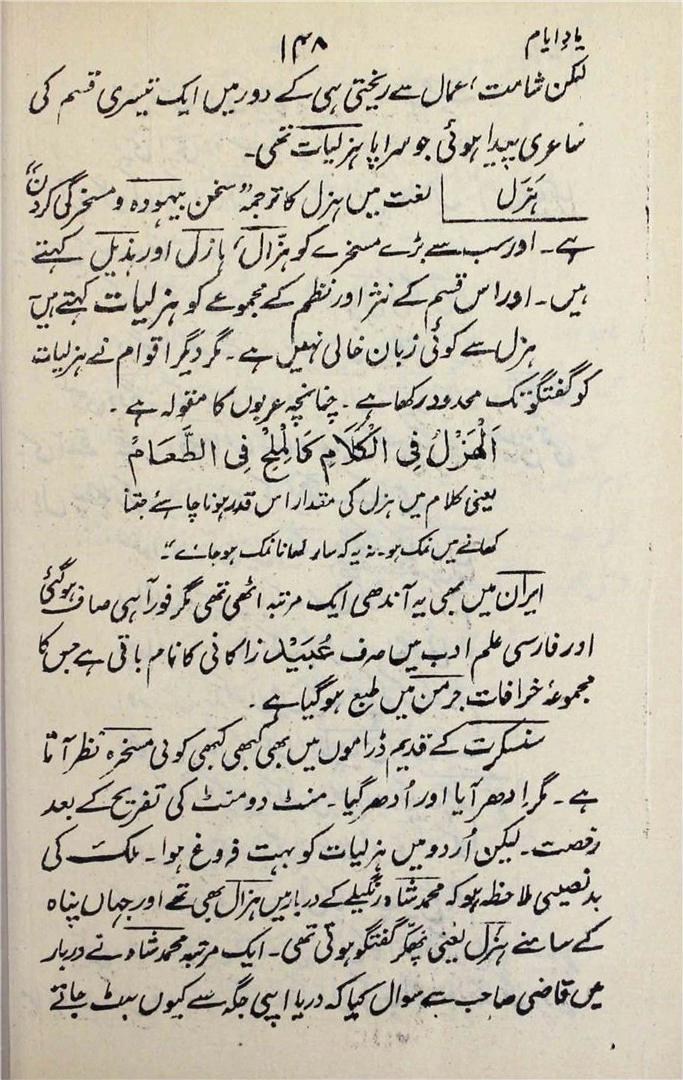 یادِ ایام
۱۴۸
لیکن شامت اعمال سے ریختی ہی کے دور میں ایک تیسری قسم کی
شاعری پیدا ہوئی جو سراپا ہزلیات تھی۔
ہَزَل
لغت میں ہزل کا ترجمہ "سخن بیہودہ و مسخرگی کردن"
ہے۔ اور سب سے بڑے مسخرے کو ہزّال، ہازل اور ہذیل کہتے
ہیں۔ اور اس قسم کے نثر اور نظم کے مجموعے کو ہزلیات کہتے ہیں
ہزل سے کوئی زبان خالی نہیں ہے۔ مگر دیگر اقوام نے ہزلیات
کو گفتگو تک محدود رکھا ہے۔ چنانچہ عربوں کا مقولہ ہے۔
اَلْهَزْلُ فِی الْکَلَامِ کَالْمِلْحِ فِی الطَّعَامْ
یعنی کلام میں ہزل کی مقدار اس قدر ہونا چاہئے جتنا
کھانے میں نمک ہو۔ نہ یہ کہ سارا کھانا نمک ہو جائے"۔
ایران میں بھی یہ آندھی ایک مرتبہ اٹھی تھی مگر فوراً ہی صاف ہوگئی
اور فارسی علم ادب میں صرف عُبَیْد زاکانی کا نام باقی ہے جس کا
مجموعۂ خرافات جرمن میں طبع ہو گیا ہے۔
سنسکرت کے قدیم ڈراموں میں بھی کبھی کبھی کوئی مسخرہ نظر آتا
ہے۔ مگر اِدھر آیا اور اُدھر گیا۔ منٹ دو منٹ کی تفریح کے بعد
رخصت۔ لیکن اُردو میں ہزلیات کو بہت فروغ ہوا۔ ملک کی
بدنصیبی ملاحظہ ہو کہ محمد شاہ رنگیلے کے دربار میں ہزال بھی تھے اور جہاں پناہ
کے سامنے ہَزَل یعنی پھکّڑ گفتگو ہوتی تھی۔ ایک مرتبہ محمد شاہ نے دربار
میں قاضی صاحب سے سوال کیا کہ دریا اپنی جگہ سے کیوں ہٹ جاتے